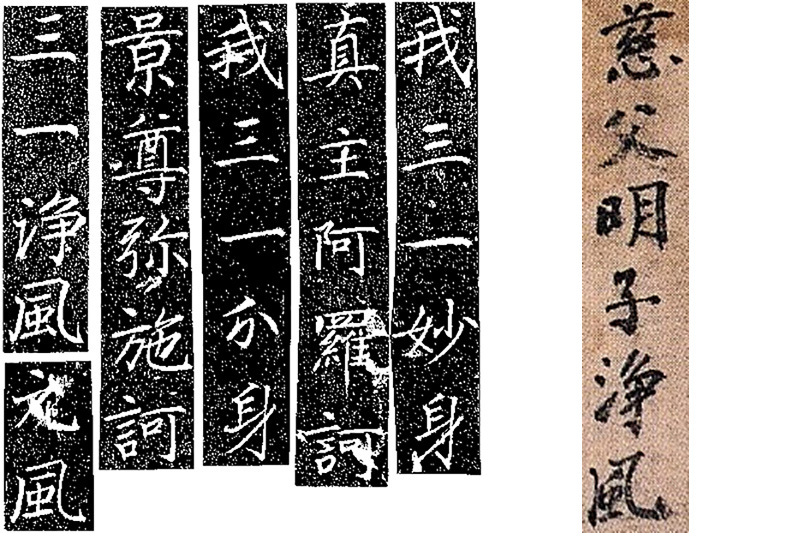 慈父明子浄風
我三一妙身
真主阿羅訶
我三一分身
景尊弥施訶
三一浄風
元風